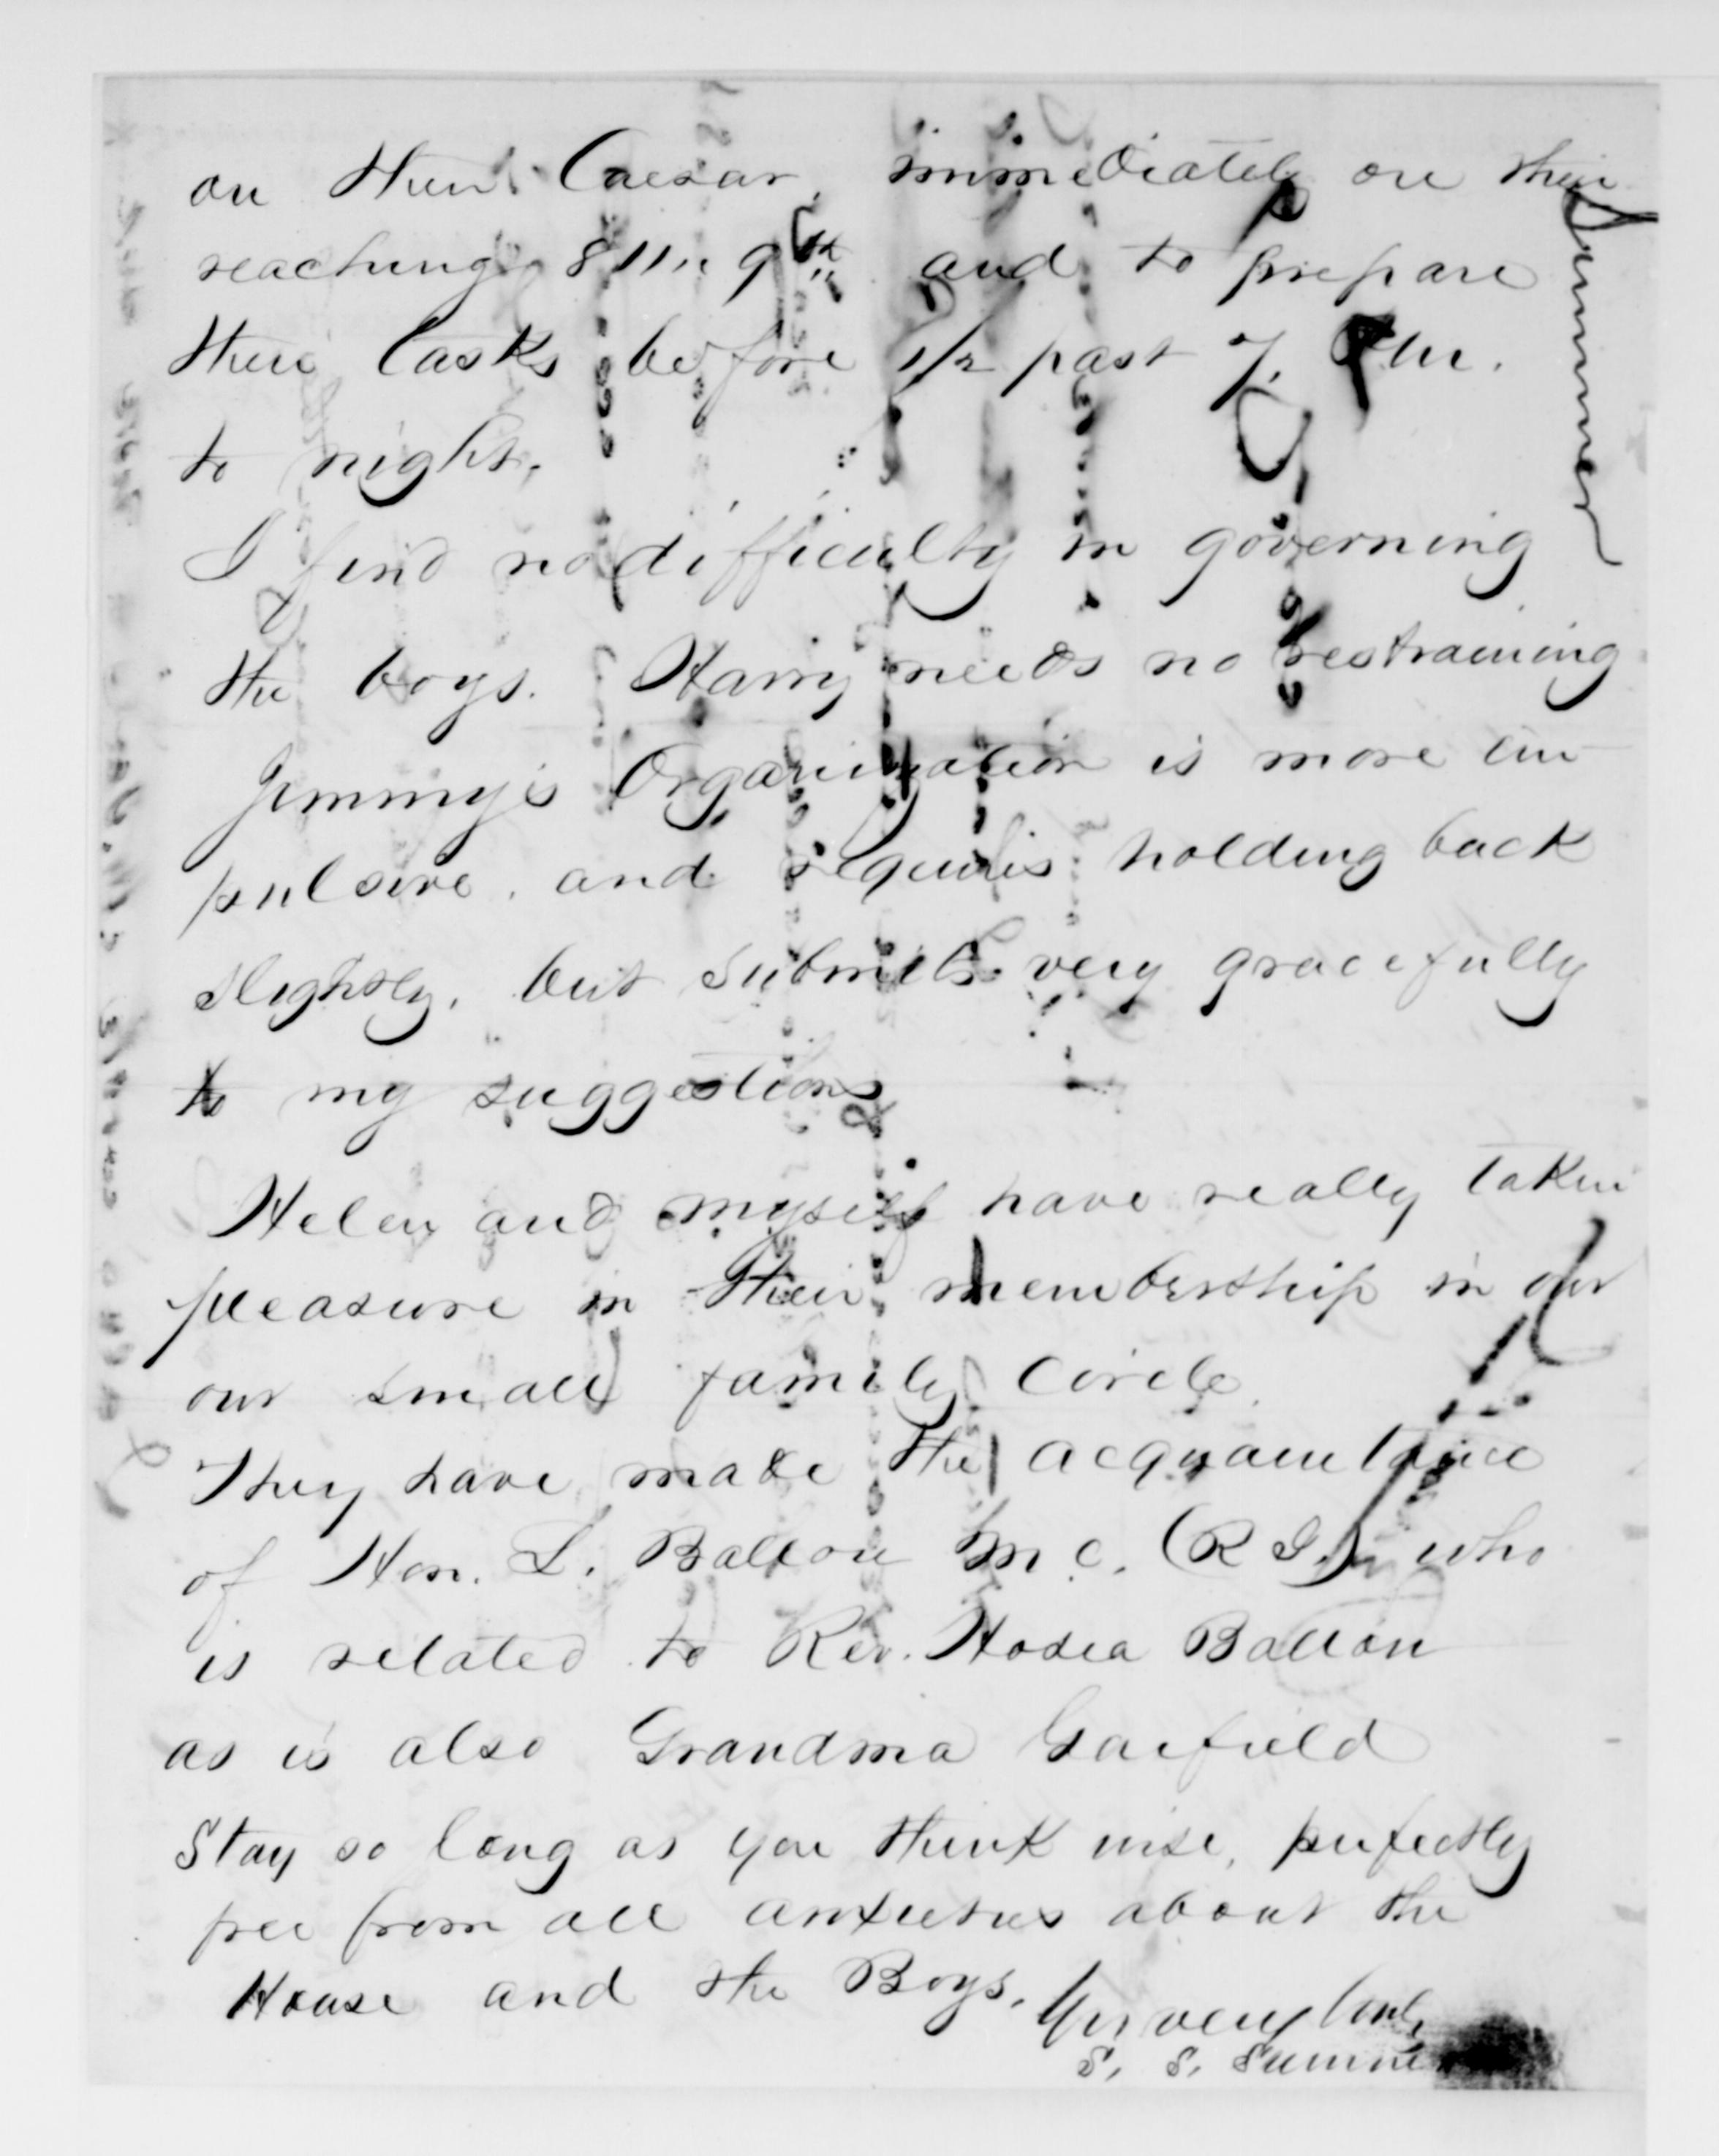 on their Caesar, immediately on their
reaching 811 "9th" and to prepare
their tasks before 1/2 past 7, P.M.
to night.
I find no difficulty in governing
the boys. Harry needs no restraining
Jimmy's Organization is more im
pulsive, and requires holding back
slightly, but submits very gracefully
to my suggestions
Helen and myself have really taken
pleasure in their membership in our
our small family circle.
They have made the acquaintance
of Hon. L. Ballou M.C. (R I.) who
is related to Rev. Hosea Ballou
as is also Grandma Garfield
Stay so long as you think wise, perfectly
free from all anxieties about the
House and the Boys.
Yrs very truly,
S. S. Sumner
Sumner